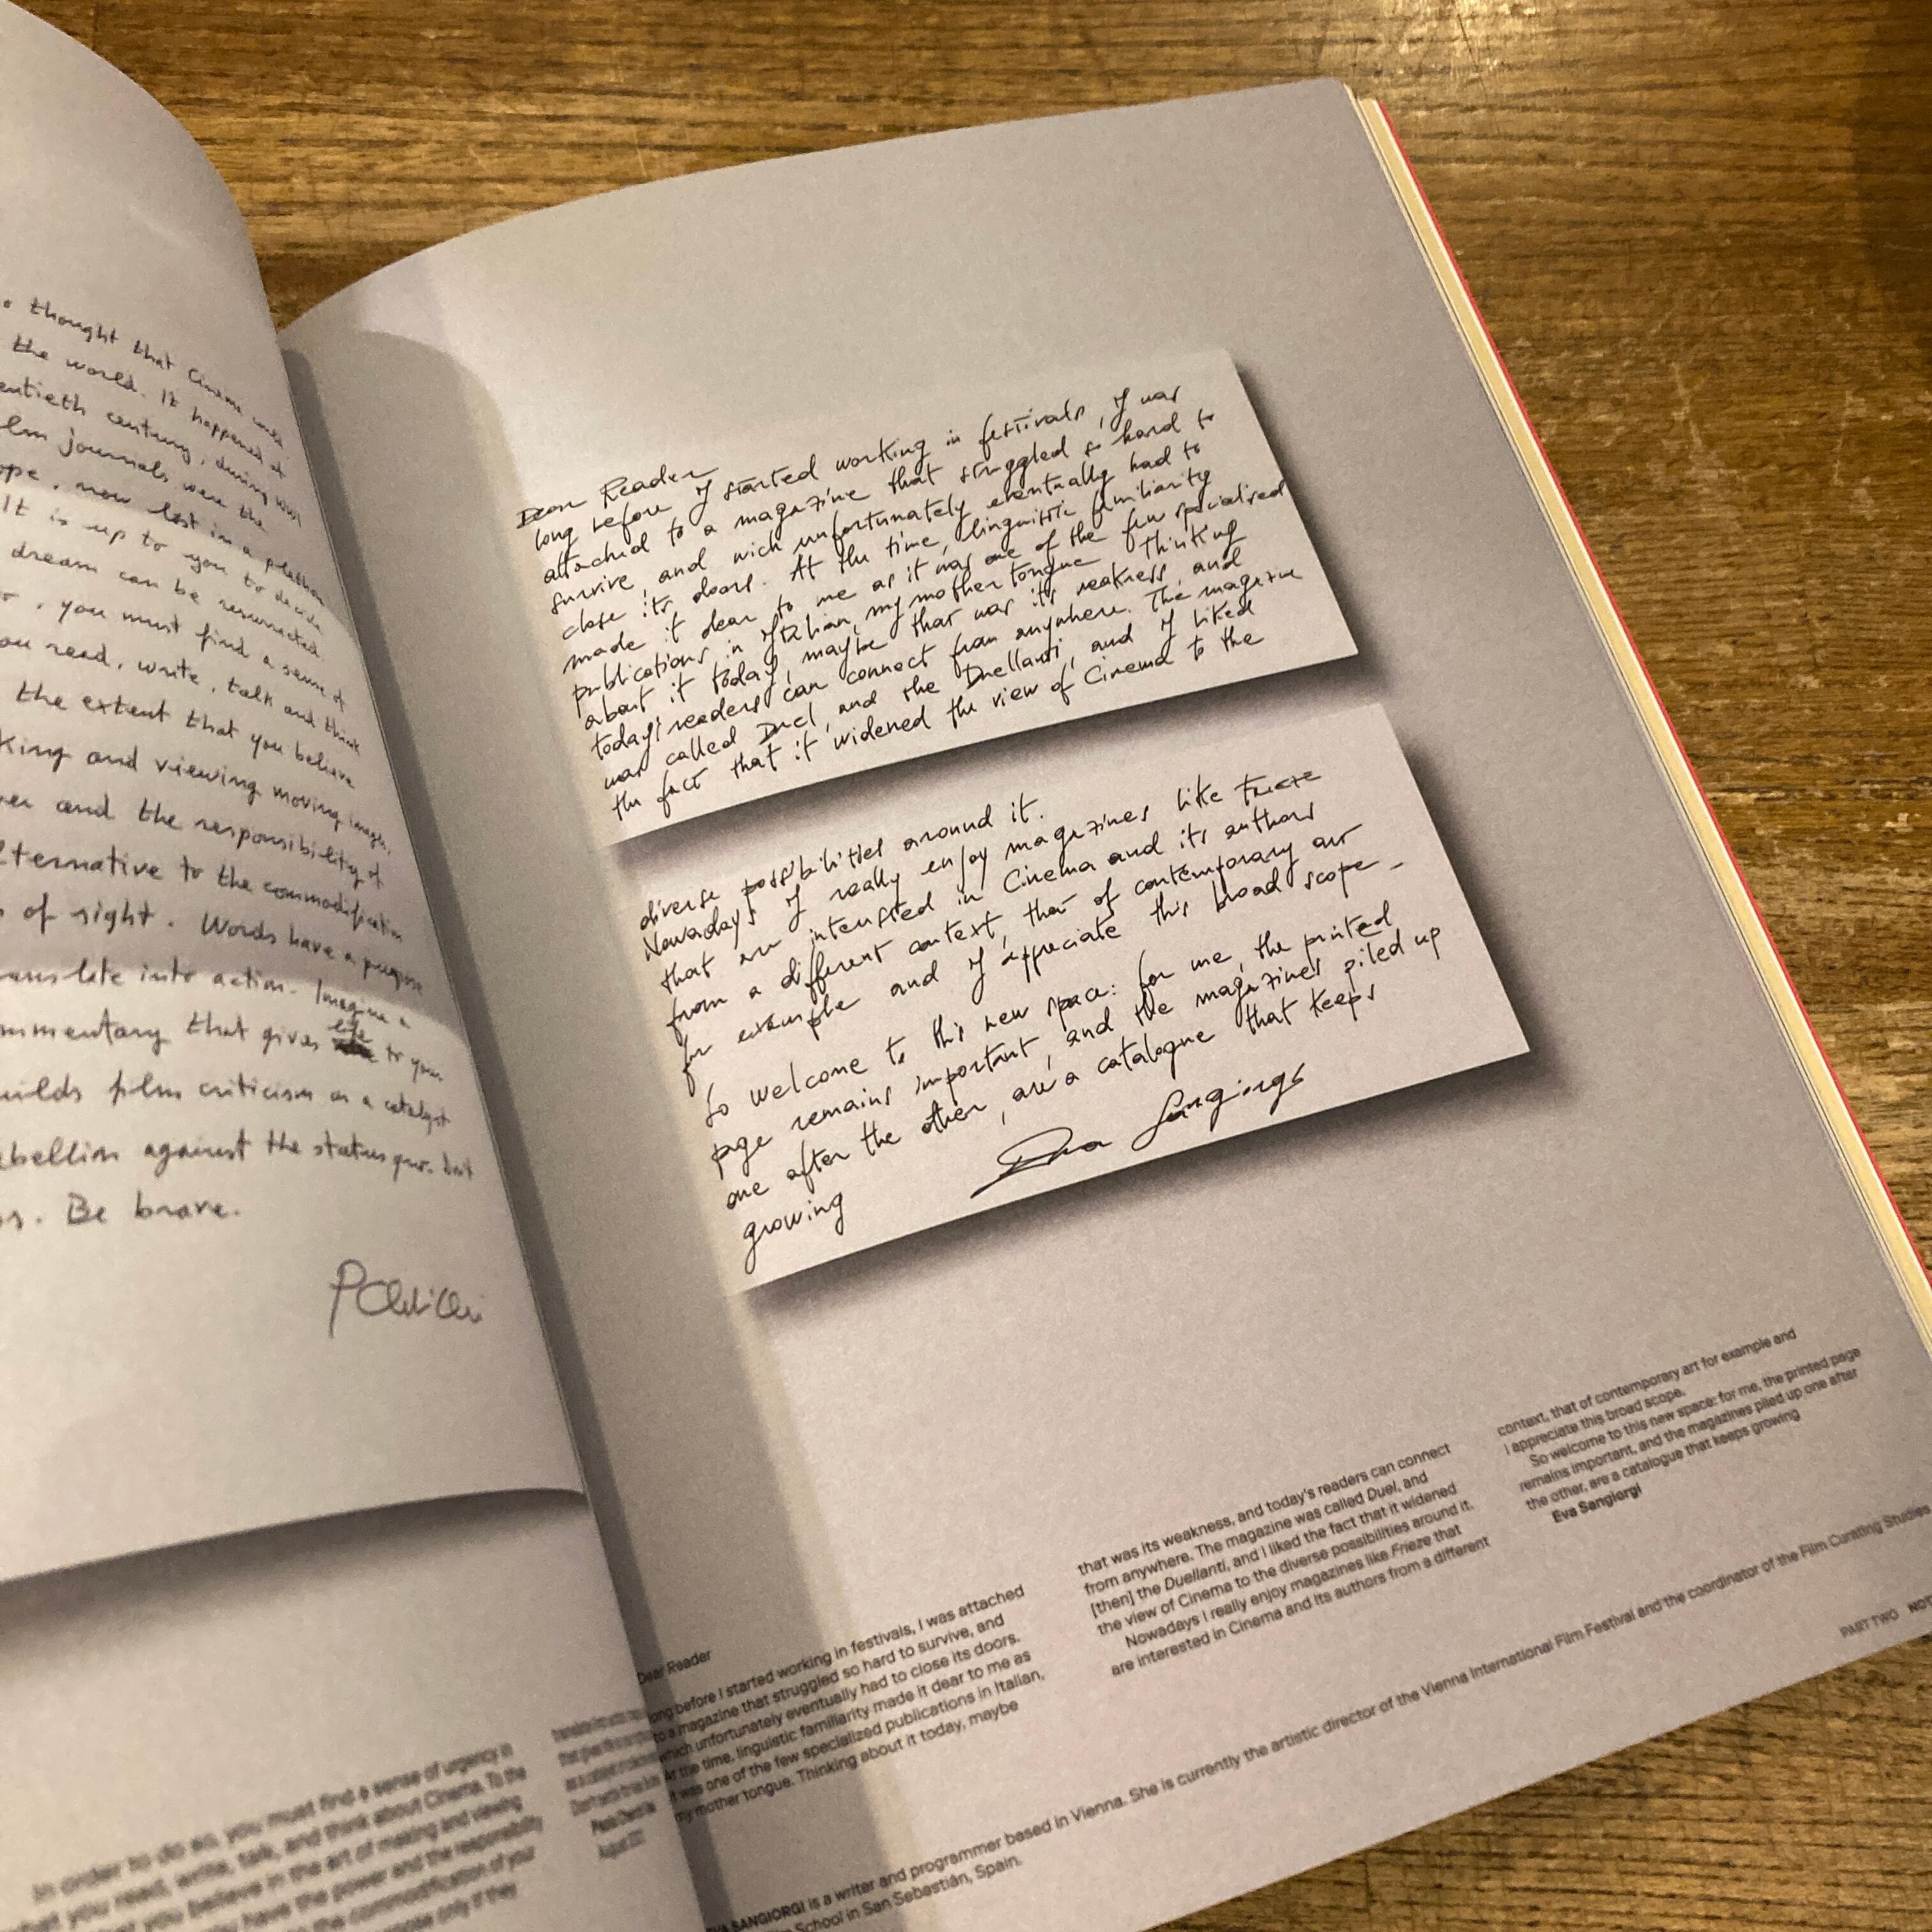 thought that Cinema could
the world. It happened at
entieth century, during
lm journals were the
ope, now lost in a plethora
It is up to you to decide
dream can be resurrected.
, you must find a sense of
ou read, write, talk and think
the extent that you believe
king and viewing moving images,
er and the responsibility of
lternative to the commodification
of sight. Words have a purpose
anslate into action. Imagine a
mmentary that gives life to your
uilds film criticism as a catalyst
ebellion against the status quo. Don't
Be brave.
Dear Reader
long before I started working in festivals, I was
attached to a magazine that struggled so hard to
survive, and wich unfortunately eventually had to
close its doors. At the time, linguistic familiarity
made it dear to me as it was one of the few specialised
publications in Italian, my mother tongue. Thinking
about it today, maybe that was its weakness, and
today's readers can connect from anywhere. The magazine
was called Duel, and the Duellanti, and I liked
the fact that it widened the view of Cinema to the
diverse possibilities around it.
Nowadays I really enjoy magazines like Frieze
that are interested in Cinema and its authors
from a different context, that of contemporary art
for example and I appreciate this broad scope.
So welcome to this new space: for me, the printed
page remains important, and the magazines piled up
one after the other, are a catalogue that keeps
growing
Eva Sangiorgi
In order to do so, you must find a sense of urgency in
what you read, write, talk, and think about Cinema. To the
you believe in the art of making and viewing
have the power and the responsibility
the commodification of your
only if they
Dear Reader
long before I started working in festivals, I was attached
to a magazine that struggled so hard to survive, and
which unfortunately eventually had to close its doors.
At the time, linguistic familiarity made it dear to me as
it was one of the few specialized publications in Italian,
my mother tongue. Thinking about it today, maybe
that was its weakness, and today's readers can connect
from anywhere. The magazine was called Duel, and
[then] the Duellanti, and I liked the fact that it widened
the view of Cinema to the diverse possibilities around it.
Nowadays I really enjoy magazines like Frieze that
are interested in Cinema and its authors from a different
context, that of contemporary art for example and
I appreciate this broad scope.
So welcome to this new space: for me, the printed page
remains important, and the magazines piled up one after
the other, are a catalogue that keeps growing
Eva Sangiorgi
EVA SANGIORGI is a writer and programmer based in Vienna. She is currently the artistic director of the Vienna International Film Festival and the coordinator of the Film Curating Studies
School in San Sebastián, Spain.
PART TWO NOT